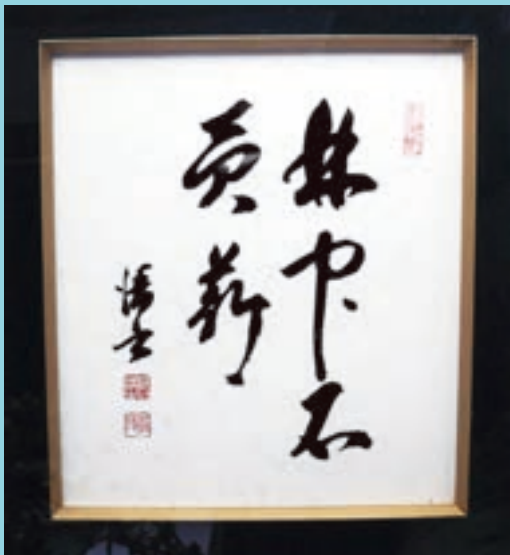 林中不
賣薪